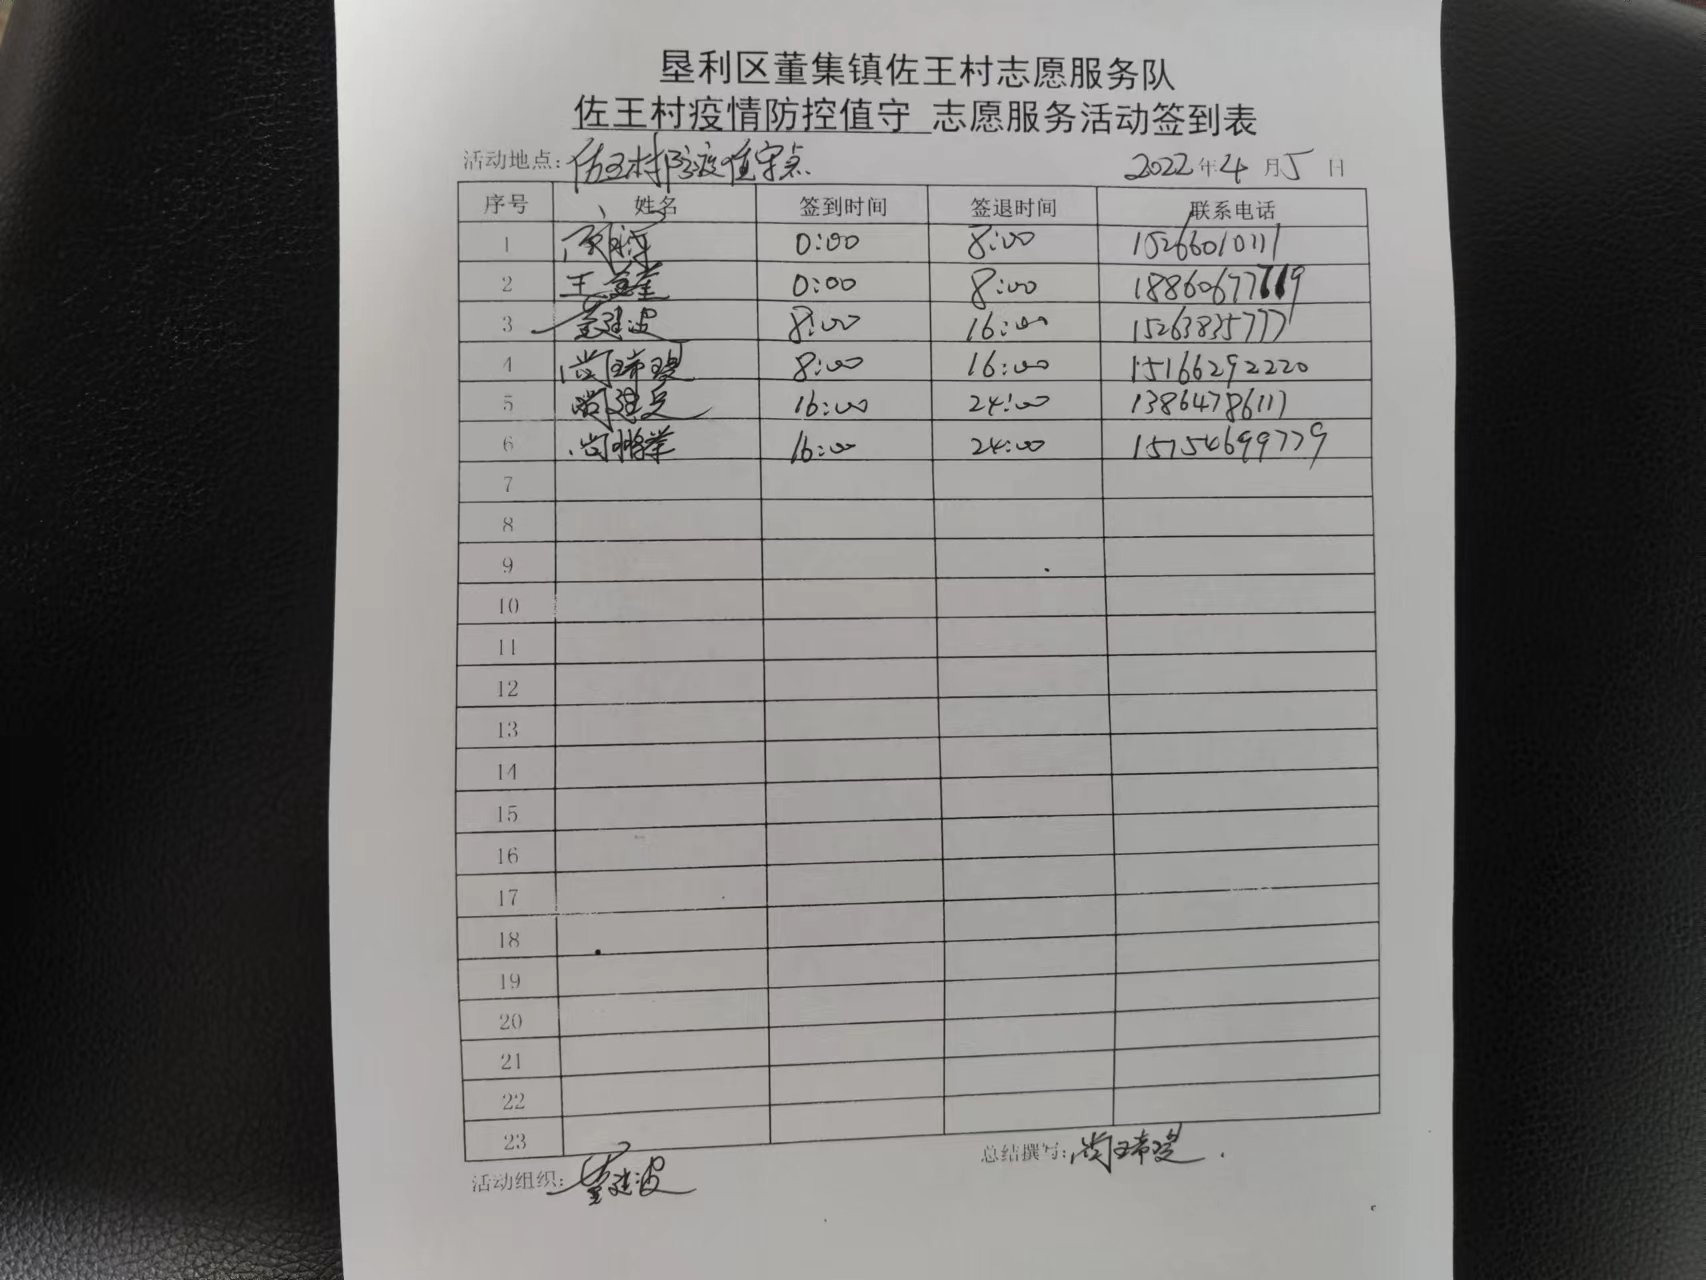 垦利区董集镇佐王村志愿服务队
佐王村疫情防控值守 志愿服务活动签到表
活动地点：佐王村防疫值守点 2022年4月5日
序号 姓名 签到时间 签退时间 联系电话
1 0:00 8:00 15266010111
2 王 0:00 8:00 18860677719
3 董建波 8:00 16:00 15263835777
4 尚瑞瑅 8:00 16:00 15166292220
5 尚建 16:00 24:00 13864786111
6 尚 16:00 24:00 15754699779
7
8
9
10
11
12
13
14
15
16
17
18
19
20
21
22
23
活动组织：董建波 总结撰写：尚瑞瑅